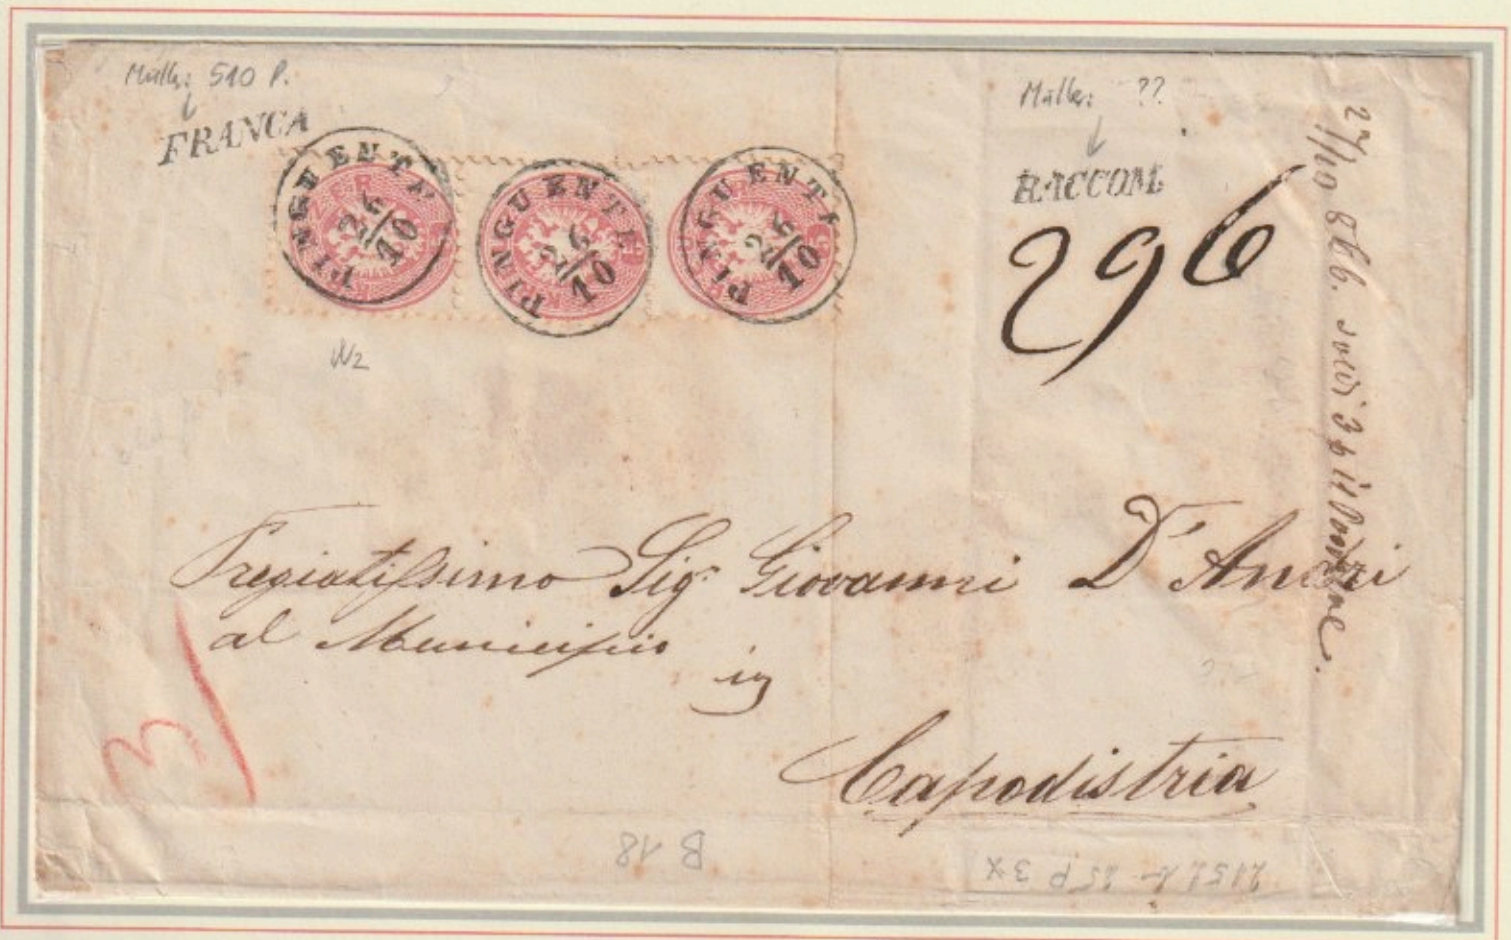 Müller: 510 P.
FRANCA
PINGUENTE
26/10
PINGUENTE
26/10
PINGUENTE
26/10
Müller: ??
RACCOM.
296
27/10 866. soldi 3
WZ
Pregiatissimo Sigr Giovanni D'Andri
al Municipio
in
Capodistria
3/
B 18
25 P 3x